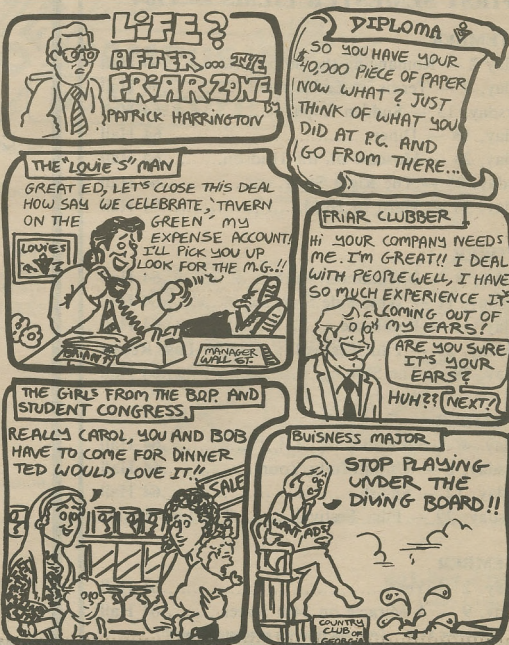 LIFE?
AFTER... THE
FRIAR ZONE
BY
PATRICK HARRINGTON
DIPLOMA
SO YOU HAVE YOUR
40,000 PIECE OF PAPER
NOW WHAT? JUST
THINK OF WHAT YOU
DID AT P.C. AND
GO FROM THERE...
THE "LOUIE'S" MAN
GREAT ED, LET'S CLOSE THIS DEAL
HOW SAY WE CELEBRATE, 'TAVERN
ON THE GREEN' MY
EXPENSE ACCOUNT!
I'LL PICK YOU UP
LOOK FOR THE M.G.!!
LOUIES
BRIAN
MANAGER
WALL ST.
FRIAR CLUBBER
HI YOUR COMPANY NEEDS
ME. I'M GREAT!! I DEAL
WITH PEOPLE WELL, I HAVE
SO MUCH EXPERIENCE IT'S
COMING OUT OF
MY EARS!
ARE YOU SURE
IT'S YOUR
EARS?
HUH?? NEXT!
THE GIRLS FROM THE B.O.P. AND
STUDENT CONGRESS
REALLY CAROL, YOU AND BOB
HAVE TO COME FOR DINNER
TED WOULD LOVE IT!!
SALE
BUISNESS MAJOR
STOP PLAYING
UNDER THE
DIVING BOARD!!
WANT ADS
COUNTRY
CLUB OF
GEORGIA